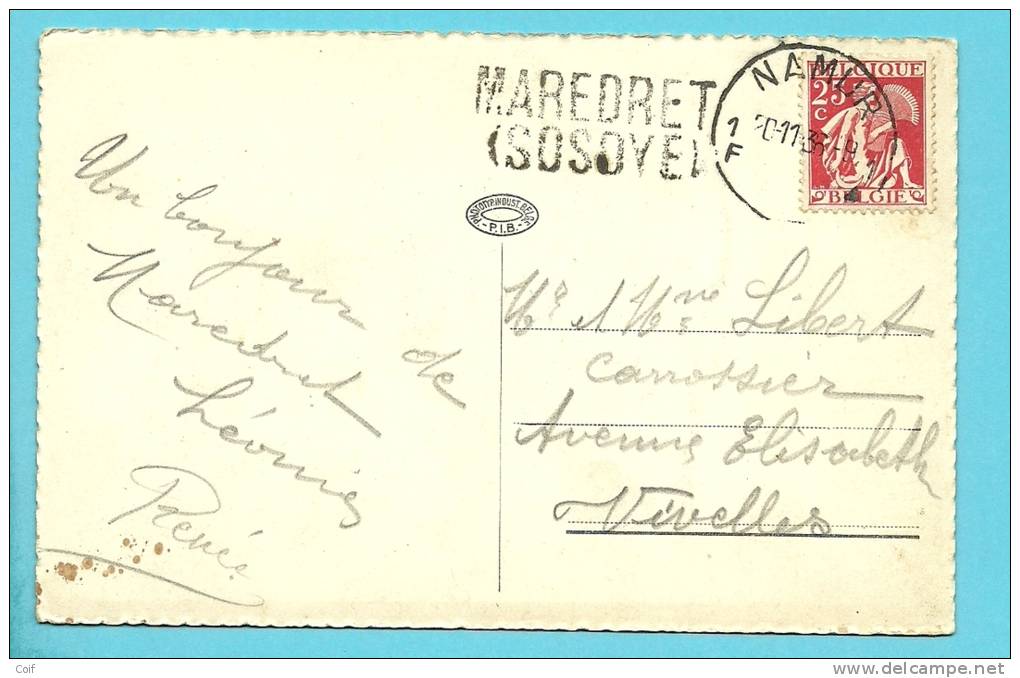 MAREDRET
(SOSOYE)
NAMUR
1
F
BELGIQUE
25
C
BELGIE
PHOTOTYP. INDUST. BELGE
- P.I.B. -
Un bonjour
de
Maredret
Léonie
Renée
Mr et Mme Libert
Carrossier
Avenue Elisabeth
Nivelles
Coif
delcampe.net